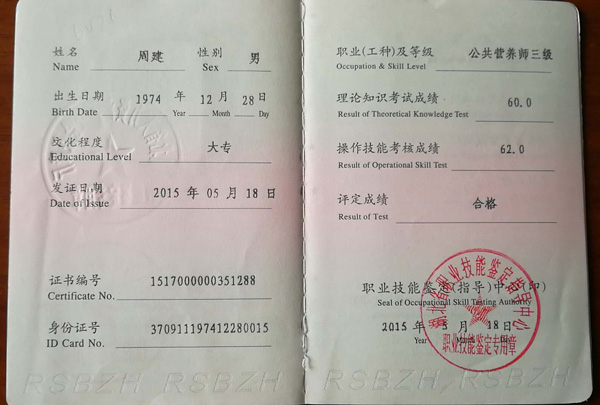 姓名 周建 性别 男
Name Sex
出生日期 1974 年 12 月 28 日
Birth Date Year Month Day
文化程度 大专
Educational Level
发证日期 2015 年 05 月 18 日
Date of Issue
证书编号 1517000000351288
Certificate No.
身份证号 370911197412280015
ID Card No.
RSBZH RSBZH
职业(工种)及等级 公共营养师三级
Occupation & Skill Level
理论知识考试成绩 60.0
Result of Theoretical Knowledge Test
操作技能考核成绩 62.0
Result of Operational Skill Test
评定成绩 合格
Result of Test
职业技能鉴定(指导)中心(印)
Seal of Occupational Skill Testing Authority
2015 年 5 月 18 日
Year Month Day
湖北省职业技能鉴定指导中心
职业技能鉴定专用章
RSBZH/RSBZH